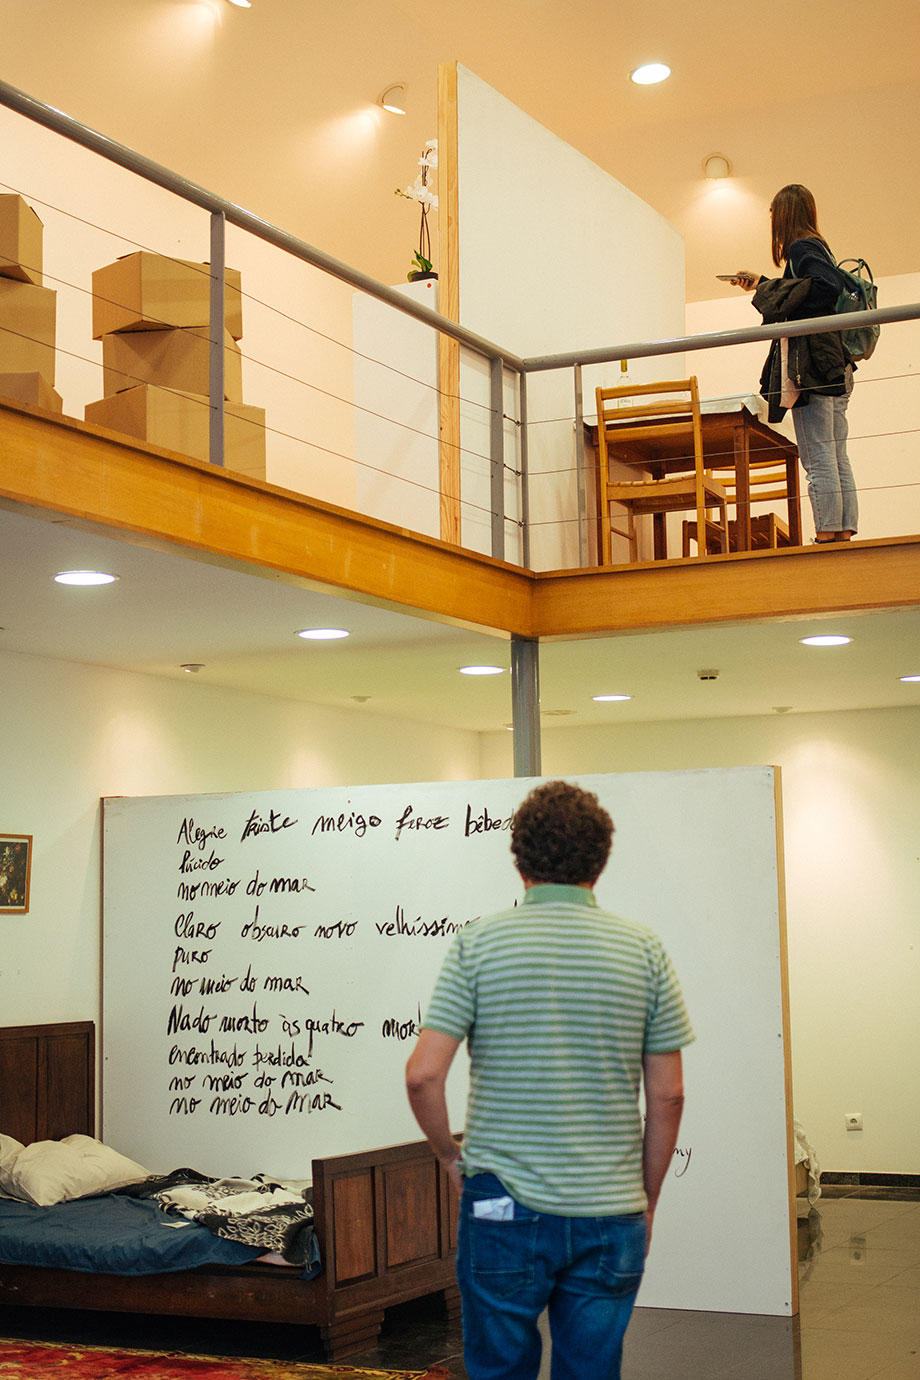 Alegre triste meigo feroz bêbedo
lúcido
no meio do mar
Claro obscuro novo velhíssimo
puro
no meio do mar
Nado morto às quatro
encontrado perdida
no meio do mar
no meio do mar
my